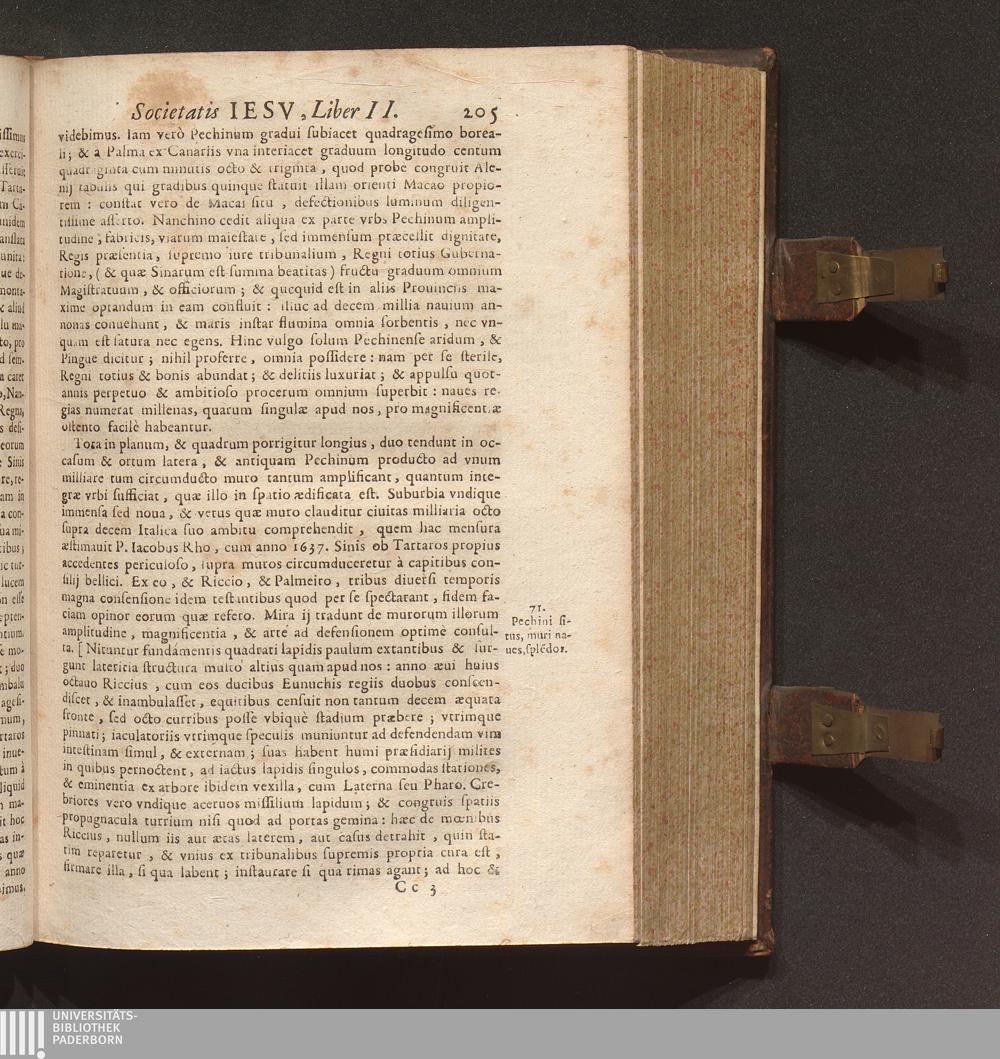 Societatis IESV, Liber II. 205
videbimus. Iam verò Pechinum gradui ſubiacet quadrageſimo borea-
li; & à Palma ex Canariis vna interiacet graduum longitudo centum
quadraginta cum minutis octo & triginta, quod probè congruit Ale-
nij tabulis qui gradibus quinque ſtatuit illam orienti Macao propio-
rem : conſtat vero de Macai ſitu, defectionibus luminum diligen-
tiſſime aſſerto. Nanchino cedit aliqua ex parte vrbs Pechinum ampli-
tudine, fabricis, viarum maieſtate, ſed immenſum præcellit dignitate,
Regis præſentia, ſupremo iure tribunalium, Regni totius Guberna-
tione, (& quæ Sinarum eſt ſumma beatitas) fructu graduum omnium
Magiſtratuum, & officiorum; & quequid eſt in aliis Prouinciis ma-
xime optandum in eam confluit : illuc ad decem millia nauium an-
nonas conuehunt, & maris inſtar flumina omnia ſorbentis, nec vn-
quam eſt ſatura nec egens. Hinc vulgo ſolum Pechinenſe aridum, &
Pingue dicitur; nihil proferre, omnia poſſidere : nam per ſe ſterile,
Regni totius & bonis abundat; & delitiis luxuriat; & appulſu quot-
annis perpetuo & ambitioſo procerum omnium ſuperbit : naues re-
gias numerat millenas, quarum ſingulæ apud nos, pro magnificentiæ
oſtento facilè habeantur.
Tota in planum, & quadrum porrigitur longius, duo tendunt in oc-
caſum & ortum latera, & antiquam Pechinum producto ad vnum
milliare tum circumducto muro tantum amplificant, quantum inte-
græ vrbi ſufficiat, quæ illo in ſpatio ædificata eſt. Suburbia vndique
immenſa ſed noua, & vetus quæ muro clauditur ciuitas milliaria octo
ſupra decem Italica ſuo ambitu comprehendit, quem hac menſura
æſtimauit P. Iacobus Rho, cum anno 1637. Sinis ob Tartaros propius
accedentes periculoſo, ſupra muros circumduceretur à capitibus con-
ſilij bellici. Ex eo, & Riccio, & Palmeiro, tribus diuerſi temporis
magna conſenſione idem teſtantibus quod per ſe ſpectarant, fidem fa-
ciam opinor eorum quæ refero. Mira ij tradunt de murorum illorum
amplitudine, magnificentia, & arte ad defenſionem optimè conſul-
ta. [ Nituntur fundamentis quadrati lapidis paulum extantibus & ſur-
gunt lateritia ſtructura multò altius quam apud nos : anno æui huius
octauo Riccius, cum eos ducibus Eunuchis regiis duobus conſcen-
diſcet, & inambulaſſet, equitibus cenſuit non tantum decem æquata
fronte, ſed octo curribus poſſe vbiquè ſtadium præbere; vtrimque
pinnati; iaculatoriis vtrimque ſpeculis muniuntur ad defendendam vim
inteſtinam ſimul, & externam; ſuas habent humi præſidiarij milites
in quibus pernoctent, ad iactus lapidis ſingulos, commodas ſtationes,
& eminentia ex arbore ibidem vexilla, cum Laterna ſeu Pharo. Cre-
briores vero vndique aceruos miſſilium lapidum; & congruis ſpatiis
propugnacula turrium niſi quod ad portas gemina : hæc de mœnibus
Riccius, nullum iis aut ætas laterem, aut caſus detrahit, quin ſta-
tim reparetur, & vnius ex tribunalibus ſupremis propria cura eſt,
firmare illa, ſi qua labent; inſtaurare ſi qua rimas agant; ad hoc &
C c 3
71.
Pechini ſi-
tus, muri na-
ues, ſplēdor.
UNIVERSITÄTS-
BIBLIOTHEK
PADERBORN